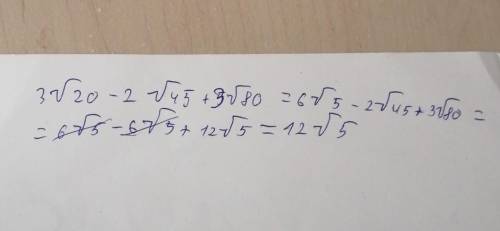 3√20 - 2 √45 + 3√80 = 6√5 - 2√45 + 3√80 =
= 6√5 - 6√5 + 12√5 = 12√5